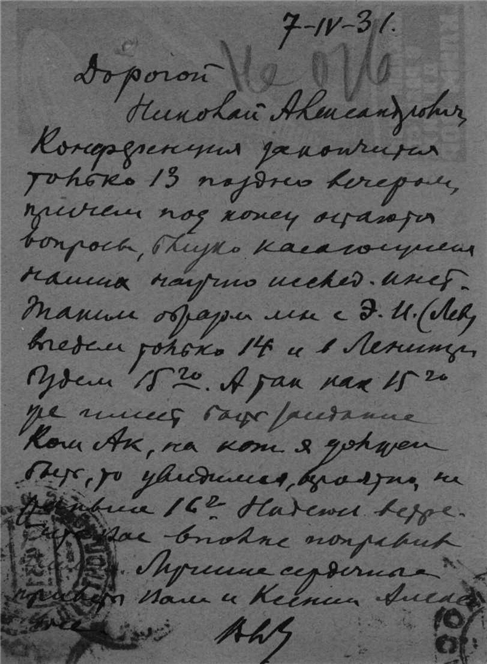 7-IV-31.
Дорогой
Николай Александрович,
Конференция закончится
только 13 поздно вечером,
причем под конец остаются
вопросы, близко касающиеся
наших научно исслед. инст.
Таким образом мы с Э. И. (Лев
выедем только 14 и в Ленингр
будем 15го. А так как 15го
же имеет быть заседание
Ком Ак, на кот я должен
быть, то увидимся, вероятно, не
раньше 16го Надеюсь встре-
вас вполне поправив
Лучшие сердечные
приветы Вам и Ксении Алекс